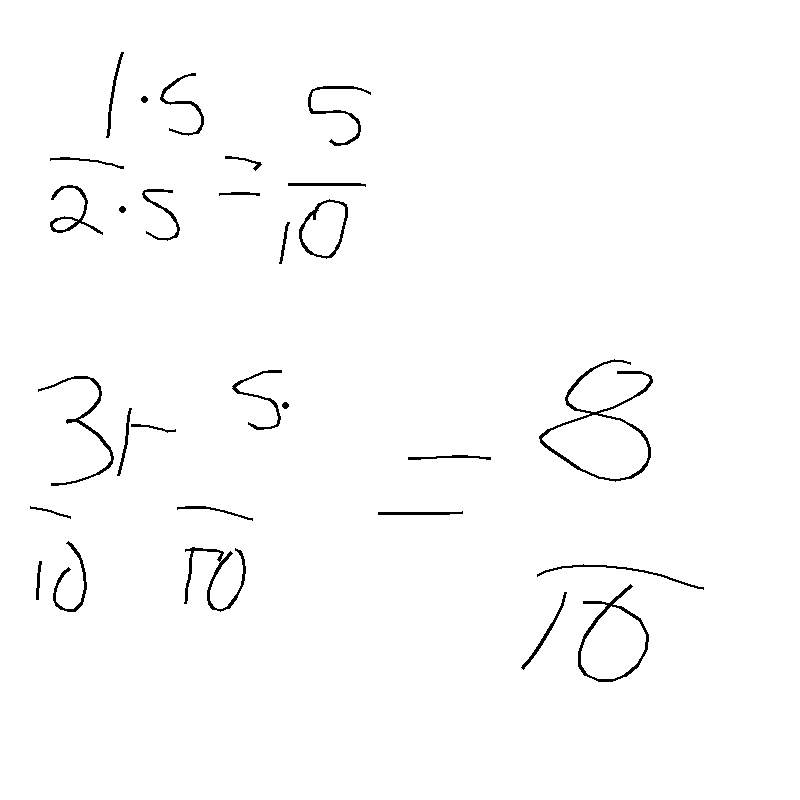 1·5/2·5 = 5/10
3/10 + 5/10 = 8/10